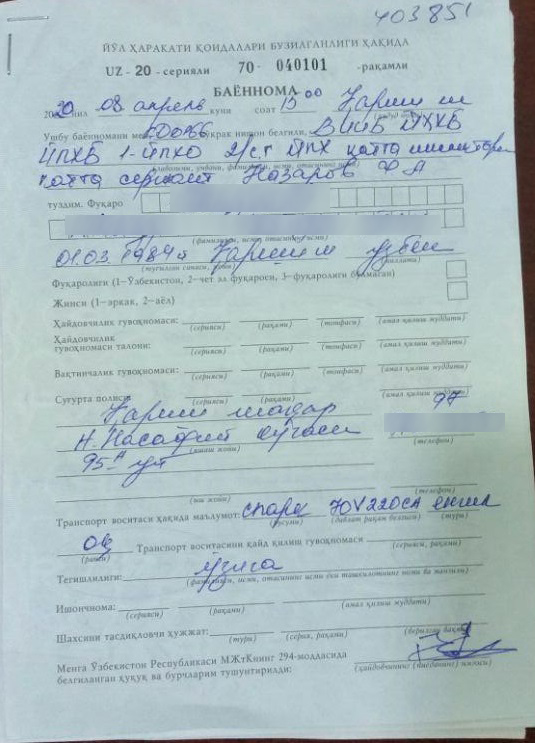 403851
ЙЎЛ ҲАРАКАТИ ҚОИДАЛАРИ БУЗИЛГАНЛИГИ ҲАҚИДА
UZ - 20 -серияли 70- 040101 -рақамли
БАЁННОМА
2020 йил 08 апрель куни соат 15 00 Қарши ш
Ушбу баённомани мен, кўкрак нишон белгили, ЙҲХБ
ЙПХБ 1-ЙПХО 2/ст ЙПХ катта инспектори
катта сержант Назаров Ф А
туздим. Фуқаро
(фамилияси, исми, отасининг исми)
01.03 1984й Қарши ш ўзбек
(туғилган санаси, жойи) (миллати)
Фуқаролиги (1-Ўзбекистон, 2-чет эл фуқароси, 3-фуқаролиги бўлмаган)
Жинси (1-эркак, 2-аёл)
Ҳайдовчилик гувоҳномаси: (серияси) (рақами) (тоифаси) (амал қилиш муддати)
Ҳайдовчилик
гувоҳномаси талони: (серияси) (рақами) (тоифаси) (амал қилиш муддати)
Вақтинчалик гувоҳнома: (серияси) (рақами) (тоифаси) (амал қилиш муддати)
Суғурта полиси (серияси) (рақами) (амал қилиш муддати)
Қарши шаҳар 97
Н.Насафий кўчаси
(яшаш жойи) (телефон)
95А уй
(иш жойи) (телефон)
Транспорт воситаси ҳақида маълумот: спарк 70V220CA енгил
(русуми) (давлат рақам белгиси) (тури)
оқ Транспорт воситасини қайд қилиш гувоҳномаси
(ранги) (серияси, рақами)
Тегишлилиги: ўзига
(фамилияси, исми, отасининг исми ёки ташкилотнинг номи ва манзили)
Ишончнома: (серияси) (рақами) (амал қилиш муддати)
Шахсини тасдиқловчи ҳужжат: (тури) (серия, рақами) (берилган вақти)
Менга Ўзбекистон Республикаси МЖтКнинг 294-моддасида
белгиланган ҳуқуқ ва бурчларим тушунтирилди: (ҳайдовчининг (пиёданинг) имзоси)